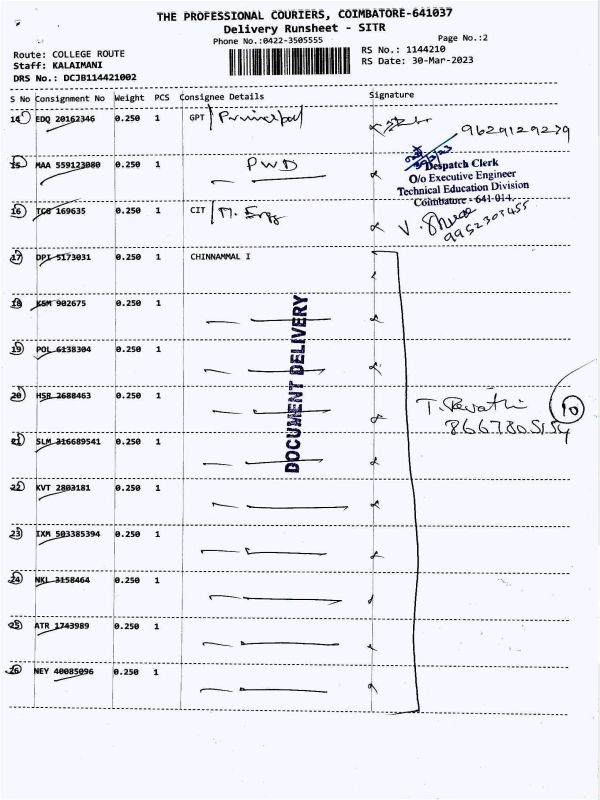 THE PROFESSIONAL COURIERS, COIMBATORE-641037
Delivery Runsheet - SITR
Phone No.:0422-3505555
Page No.:2
Route: COLLEGE ROUTE
Staff: KALAIMANI
DRS No.: DCJB114421002
RS No.: 1144210
RS Date: 30-Mar-2023
S No Consignment No Weight PCS Consignee Details Signature
14 EDQ 20162346 0.250 1 GPT Principal
9629129279
15 MAA 559123080 0.250 1 PWD
Despatch Clerk
O/o Executive Engineer
Technical Education Division
Coimbatore - 641 014.
16 TCG 169635 0.250 1 CIT
9952303455
17 DPI 5173031 0.250 1 CHINNAMMAL I
18 KSM 902675 0.250 1
19 POL 6138304 0.250 1
20 HSR 2688463 0.250 1
T. Revathi
10
21 SLM 316689541 0.250 1
22 KVT 2803181 0.250 1
23 IXM 503385394 0.250 1
24 NKL 3158464 0.250 1
25 ATR 1743989 0.250 1
26 NEY 40085096 0.250 1
DOCUMENT DELIVERY